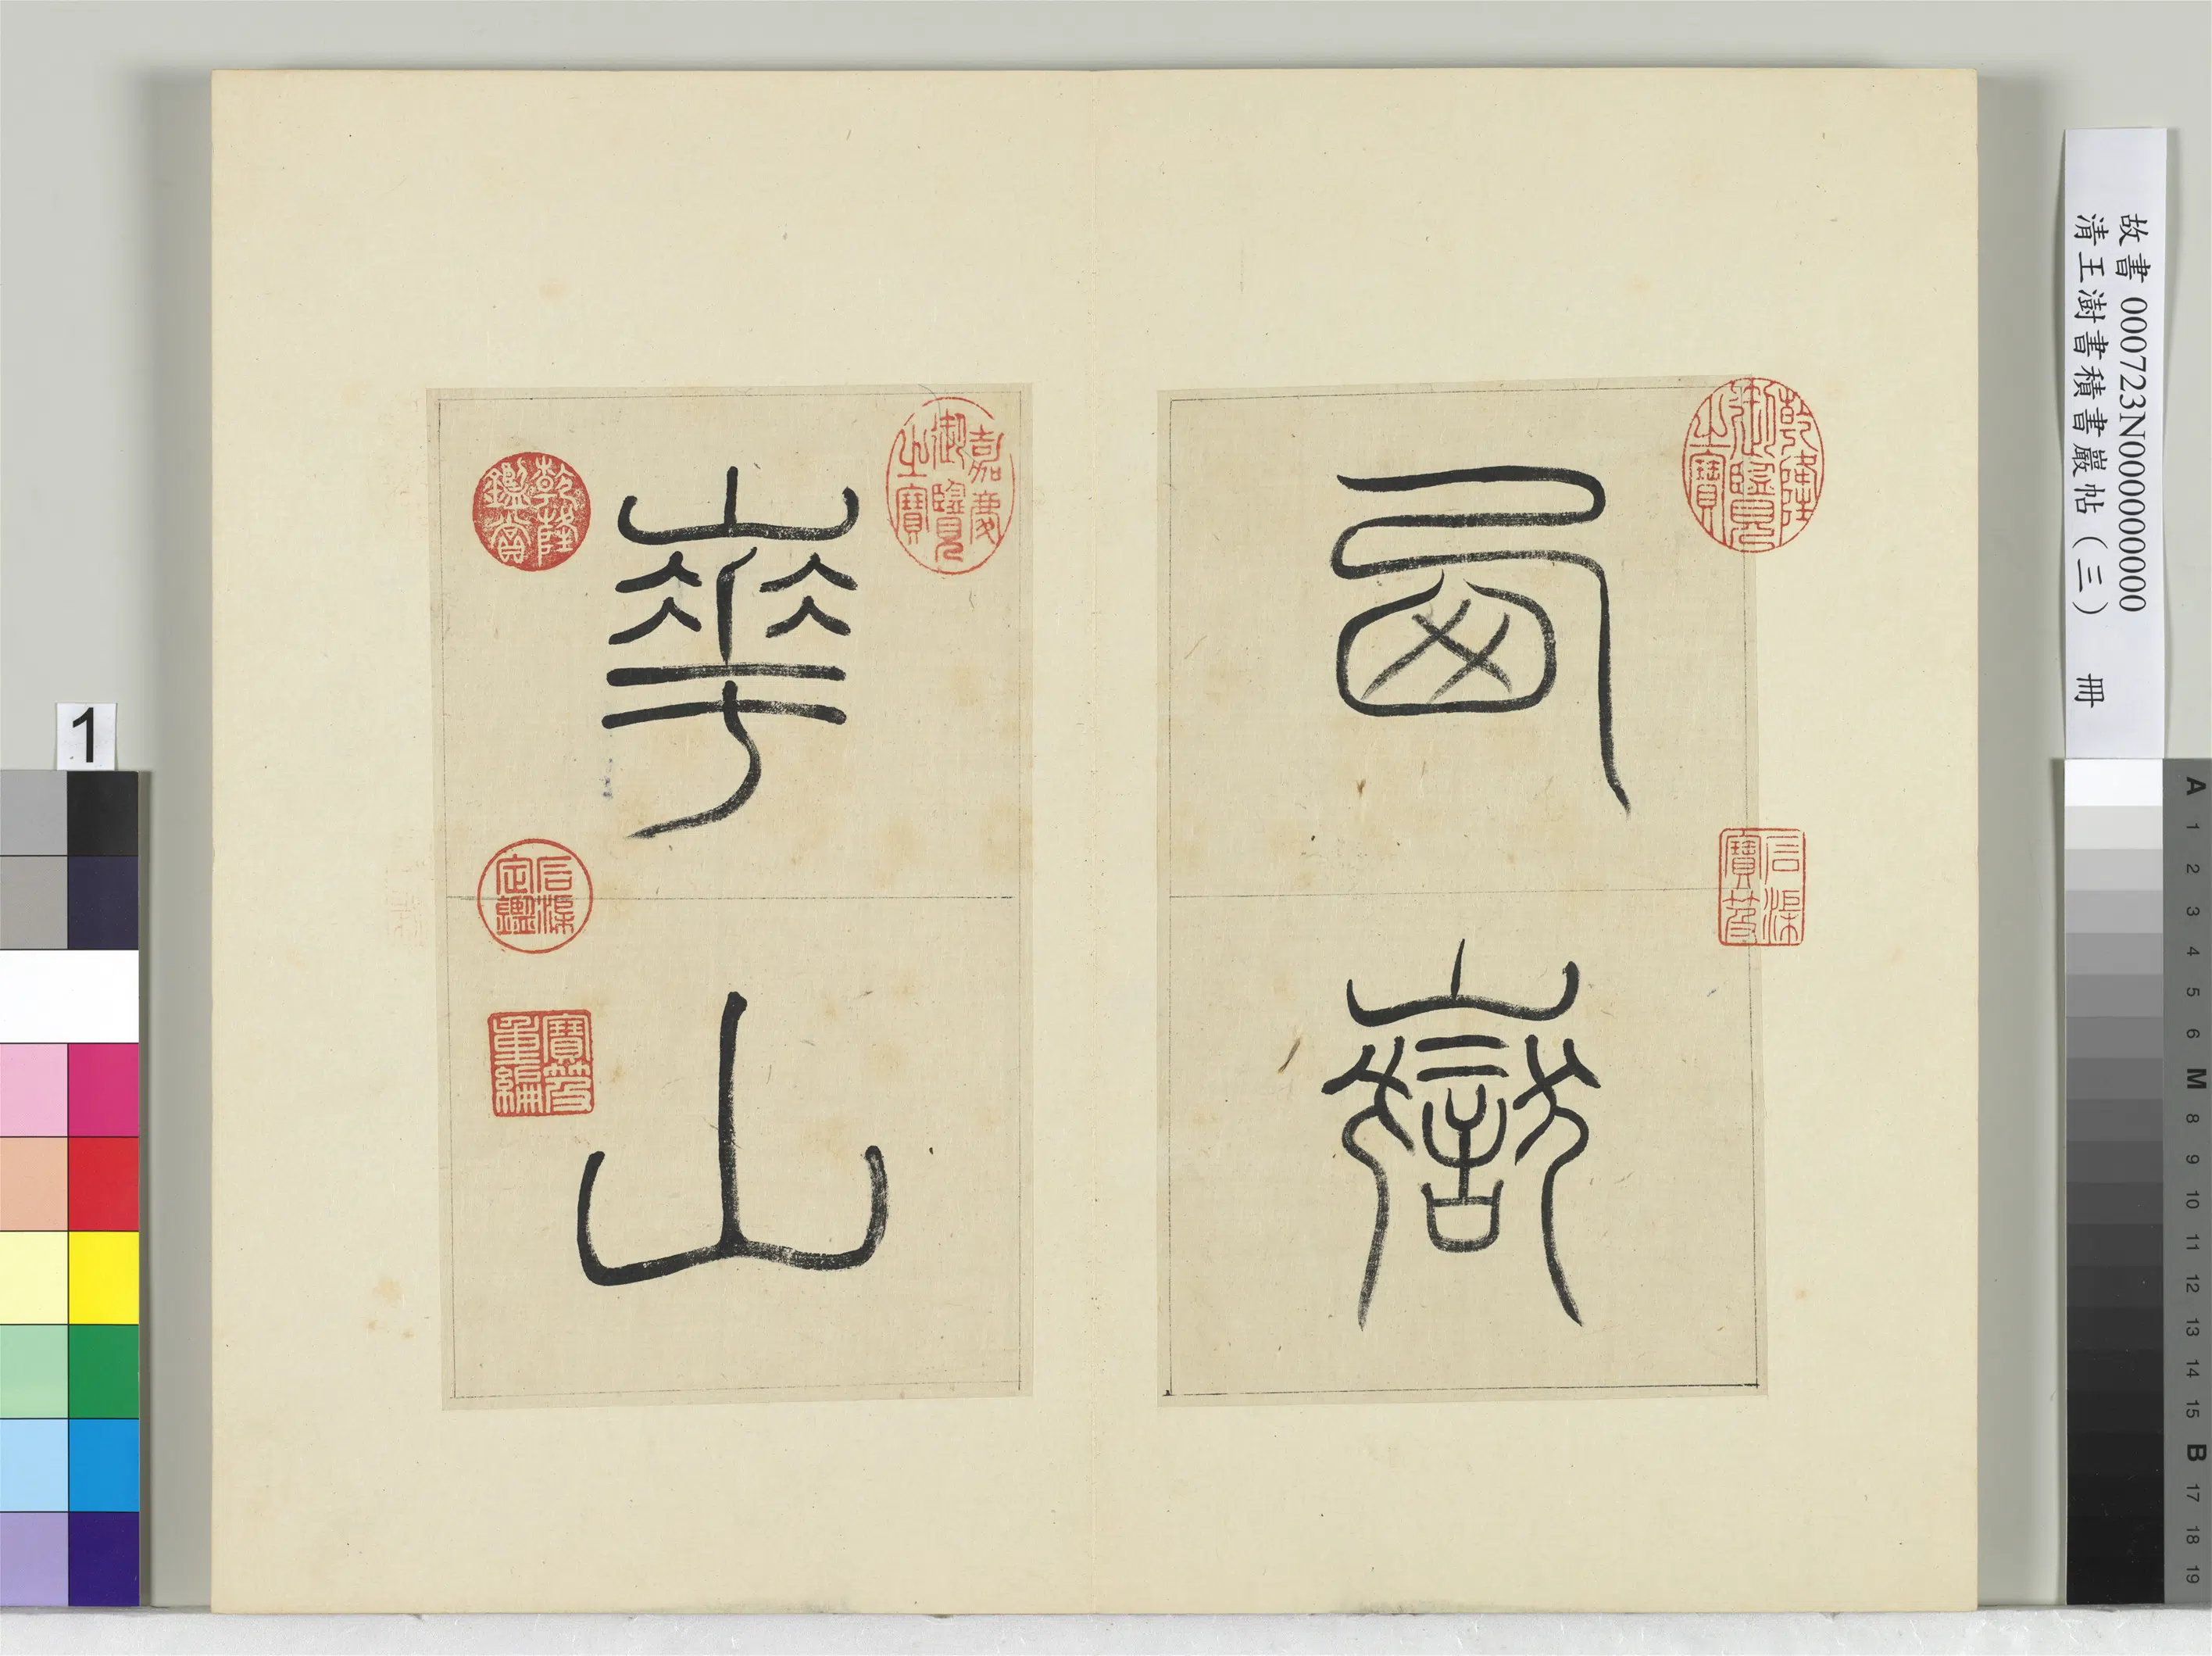 西嶽
華山
乾隆御覽之寶
石渠寶笈
嘉慶御覽之寶
乾隆鑑賞
石渠定鑑
寶笈重編
故書 000723N000000000
清王澍書積書巖帖（三） 冊
1
A 1 2 3 4 5 6 M 8 9 10 11 12 13 14 15 B 17 18 19